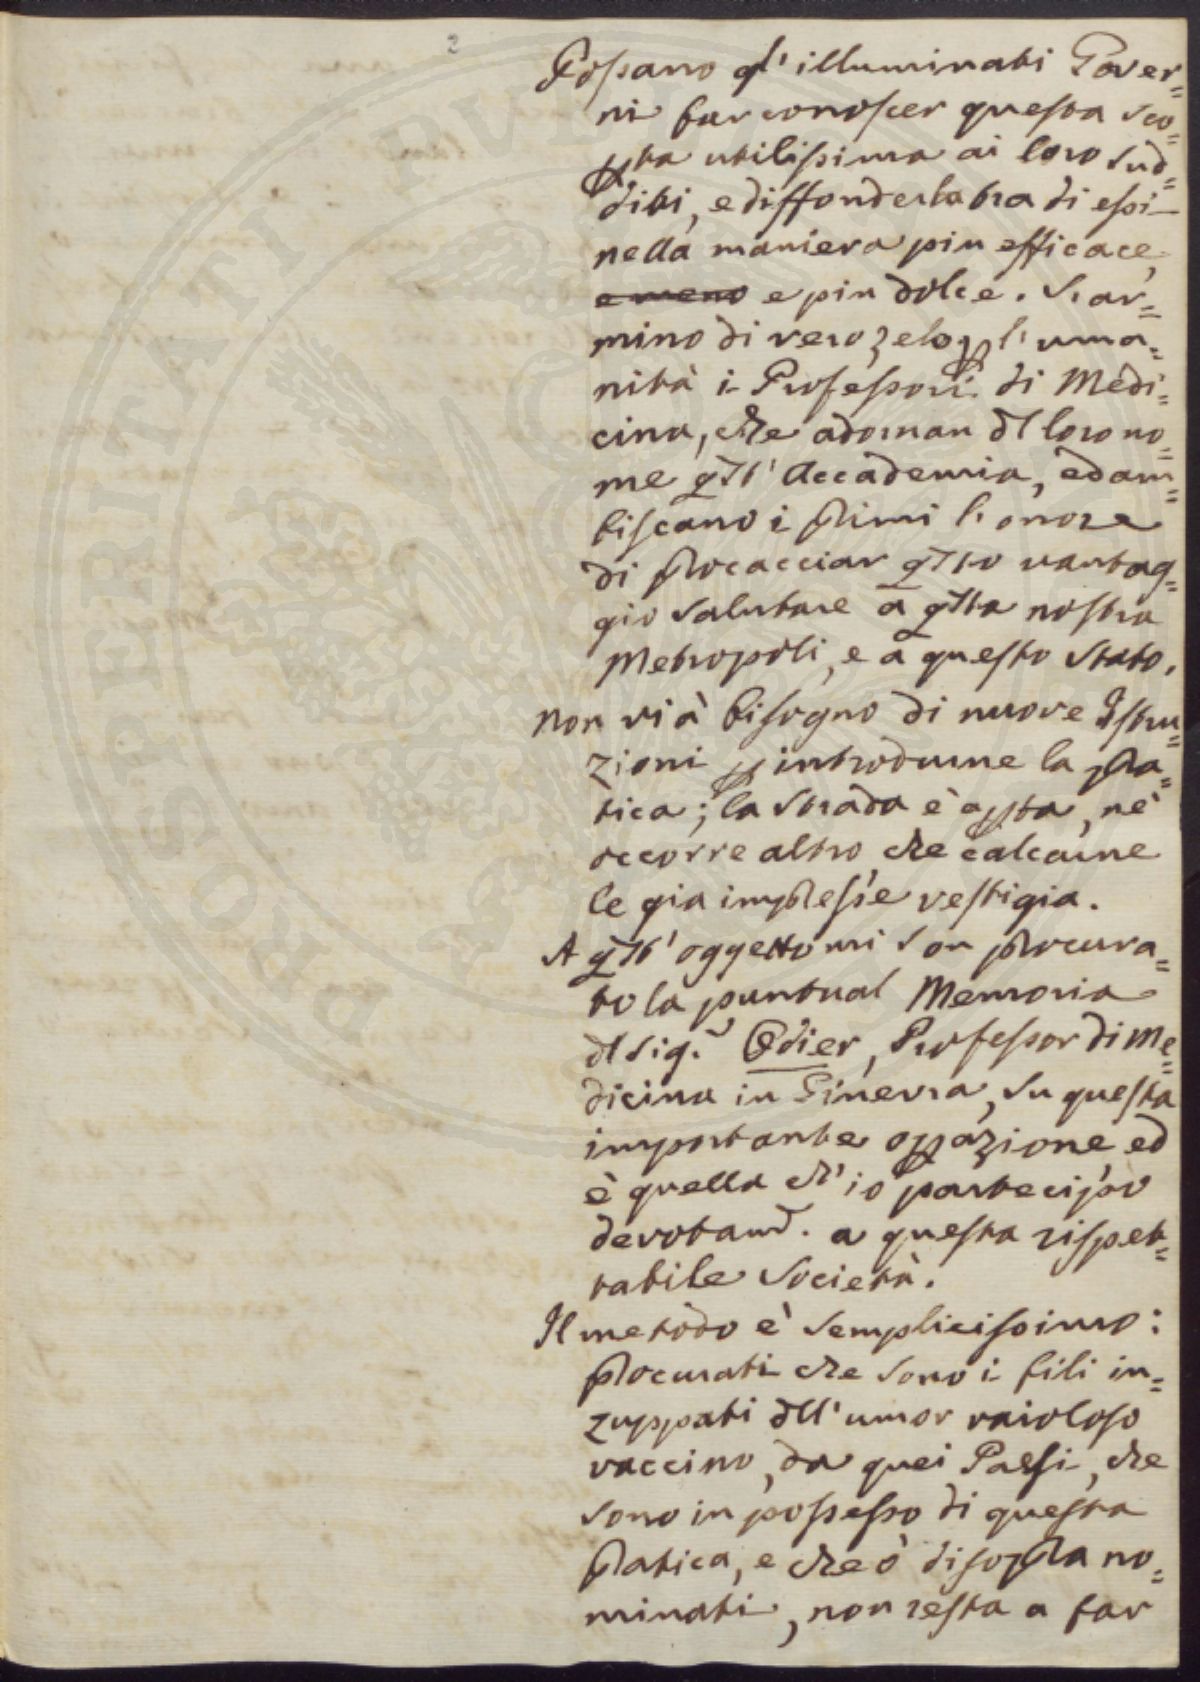 2
Possano gl' illuminati Gover=
ni far conoscer questa sco=
pta utilissima ai loro sud=
diti, e diffonderla tra di essi
nella maniera piu efficace,
e meno e piu dolce. S'ar=
mino di vero zelo p l'uma=
nità i Professori di Medi=
cina, che adornan dl loro no=
me qst' Accademia, ed am=
biscano i primi l'onore
di procacciar qsto vantag=
gio salutare a qsta nostra
Metropoli, e a questo Stato.
Non vi à bisogno di nuove Istru=
zioni p introdurne la pra=
tica; la strada è apta, nè
occorre altro che calcarne
le gia impresse vestigia.
A qst' oggetto mi son procura=
to la puntual Memoria
dl Sig.r Odier, Professor di Me=
dicina in Ginevra, su questa
importante opazione ed
è quella ch'io partecipo
devotamē. a questa rispet=
tabile Società.
Il metodo è semplicissimo:
procurati che sono i fili in=
zuppati dll'umor vaioloso
vaccino, da quei Paesi, che
sono in possesso di questa
pratica, e che ò di sopra no=
minati, non resta a far
PROSPERITATI PVBLICAE